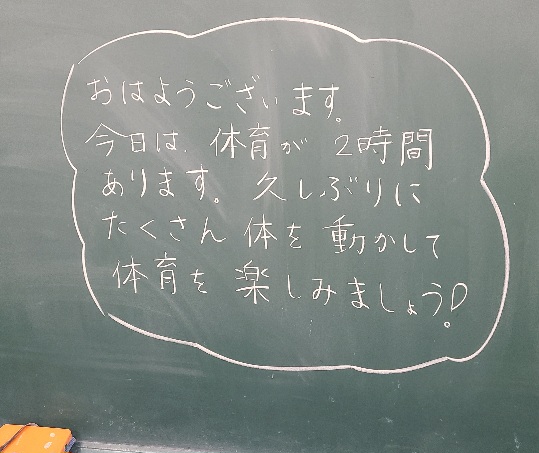 おはようございます。
今日は、体育が 2時間
あります。久しぶりに
たくさん 体を 動かして
体育を 楽しみましょう!